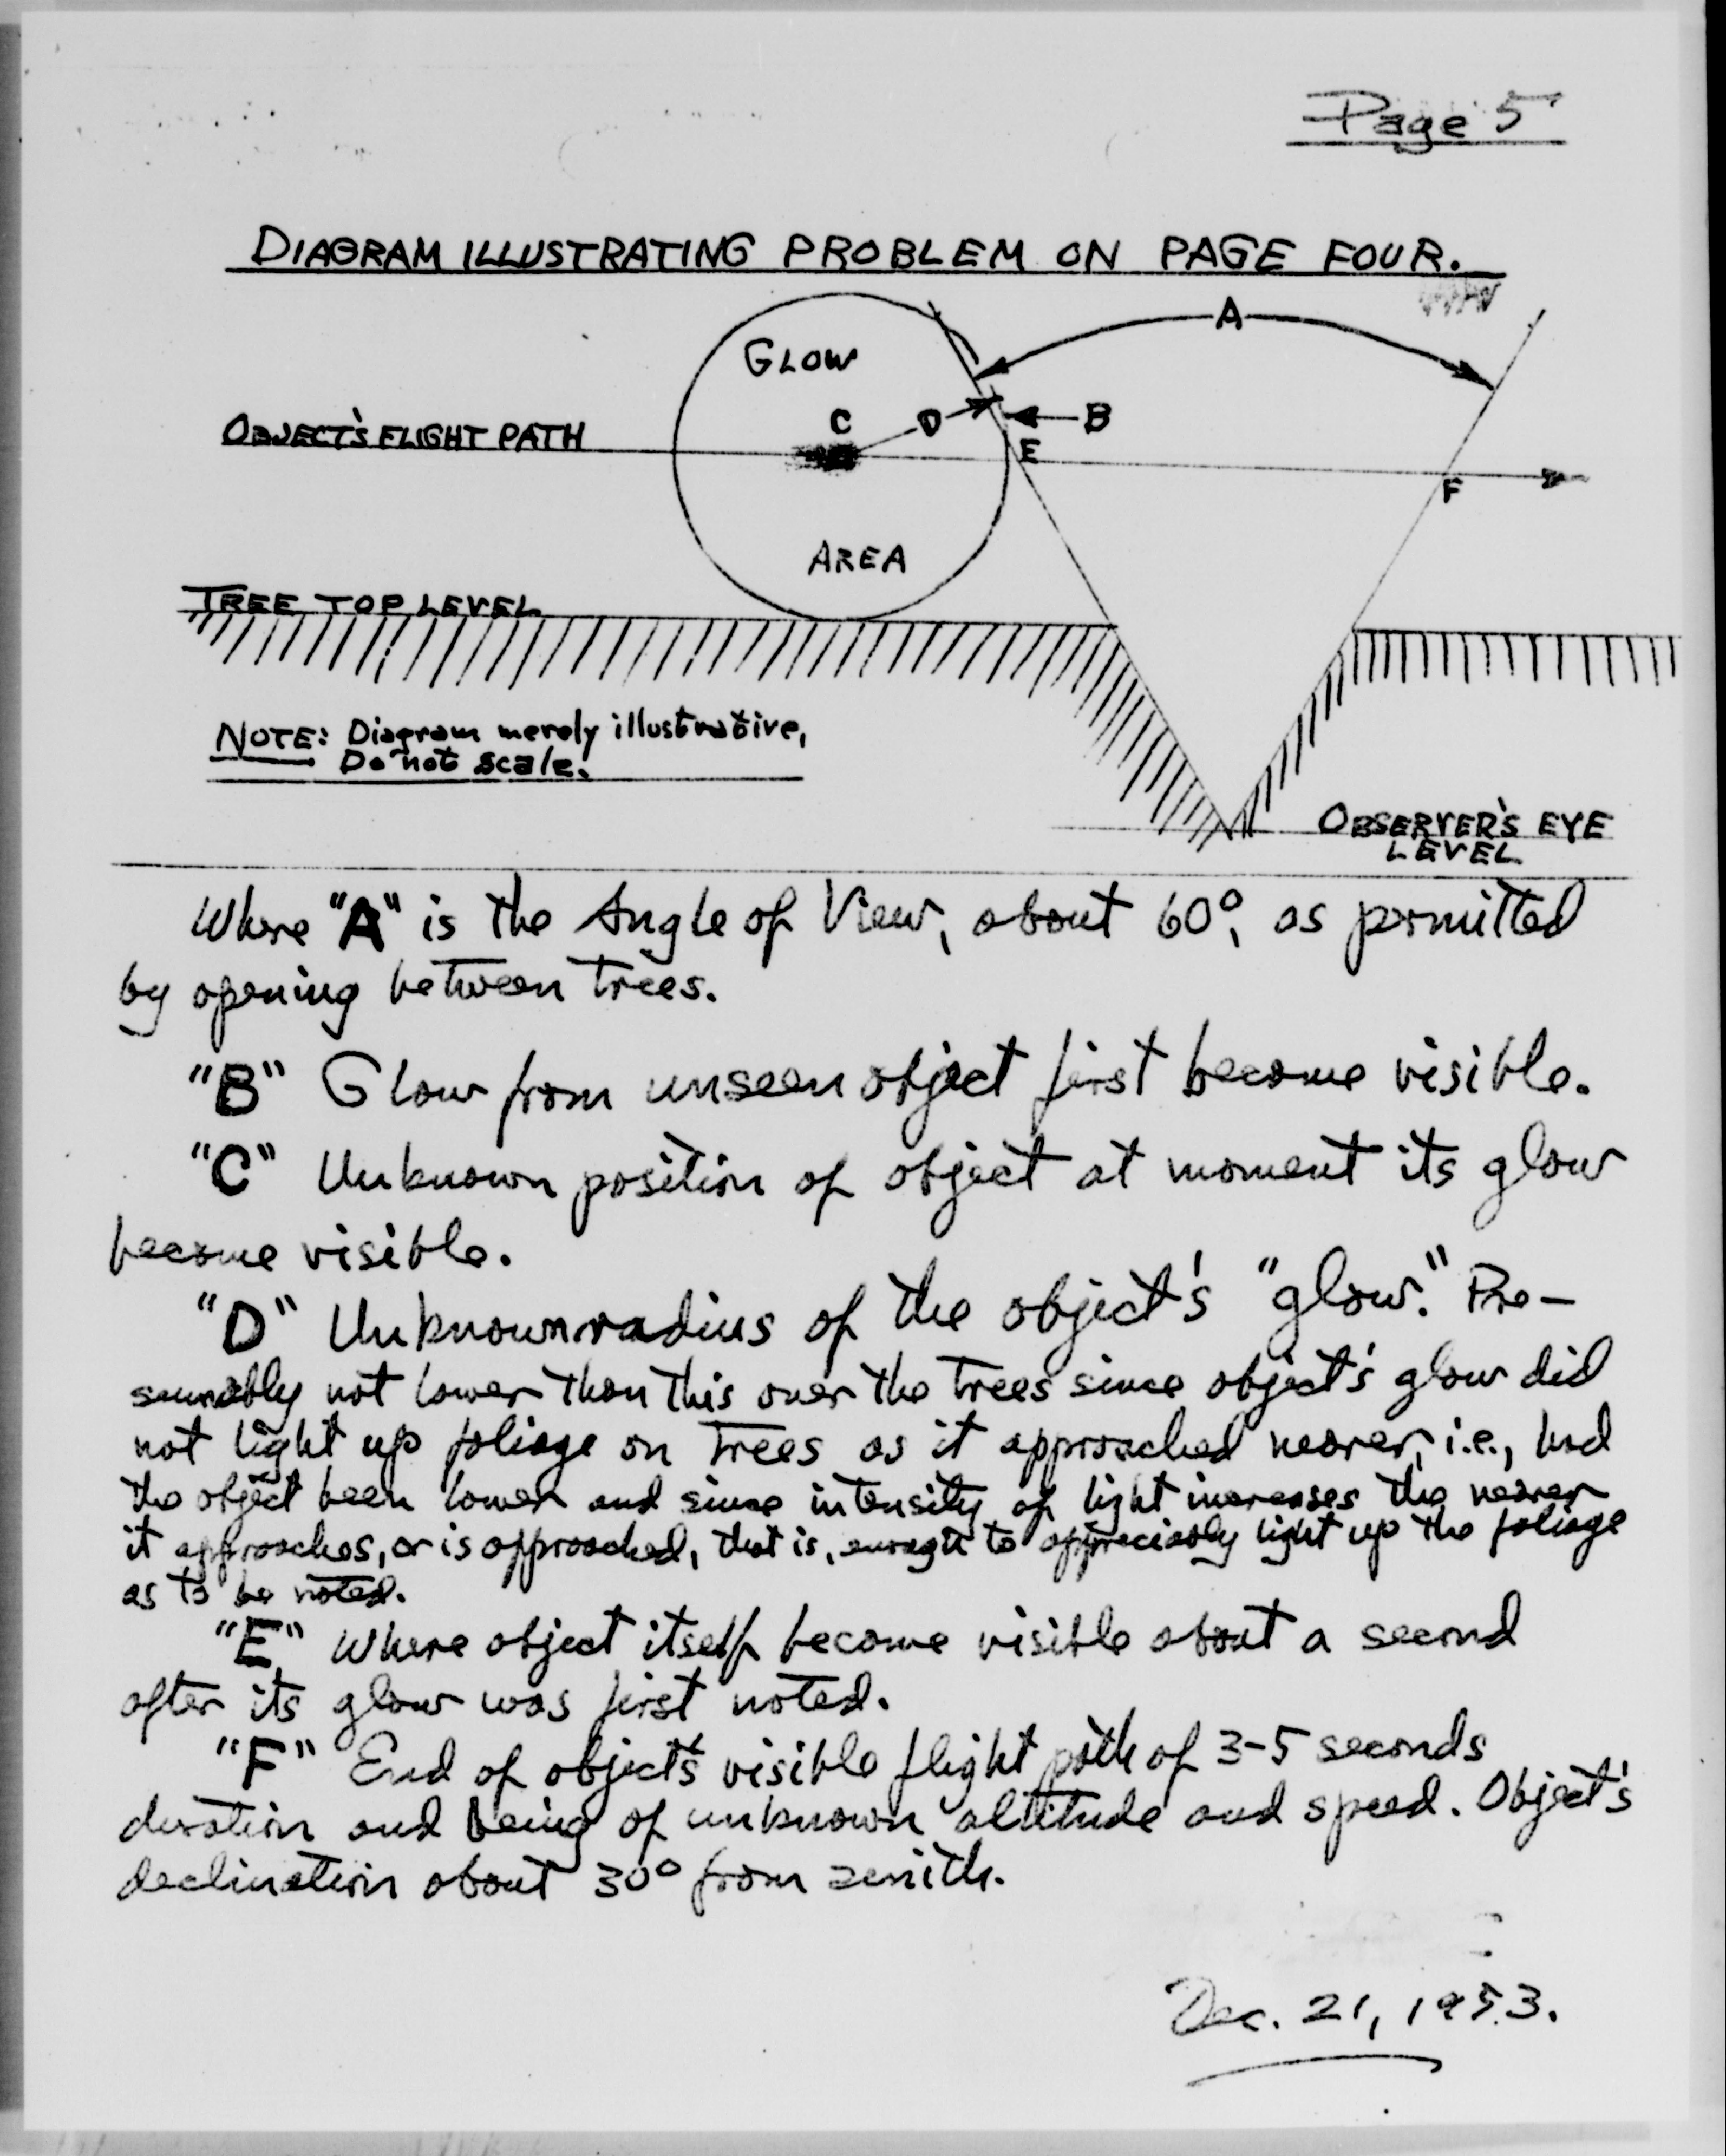 Page 5
DIAGRAM ILLUSTRATING PROBLEM ON PAGE FOUR.
A
GLOW
C
D
B
OBJECT'S FLIGHT PATH
E
F
AREA
TREE TOP LEVEL
NOTE: Diagram merely illustrative,
Do not scale.
OBSERVER'S EYE
LEVEL
Where "A" is the Angle of View, about 60°, as permitted
by opening between trees.
"B" Glow from unseen object first become visible.
"C" Unknown position of object at moment its glow
become visible.
"D" Unknown radius of the object's "glow." Pre-
sumably not lower than this over the trees since object's glow did
not light up foliage on trees as it approached nearer, i.e., had
the object been lower and since intensity of light increases the nearer
it approaches, or is approached, that is, enough to appreciably light up the foliage
as to be noted.
"E" Where object itself become visible about a second
after its glow was first noted.
"F" End of object's visible flight path of 3-5 seconds
duration and being of unknown altitude and speed. Object's
declination about 30° from zenith.
Dec. 21, 1953.